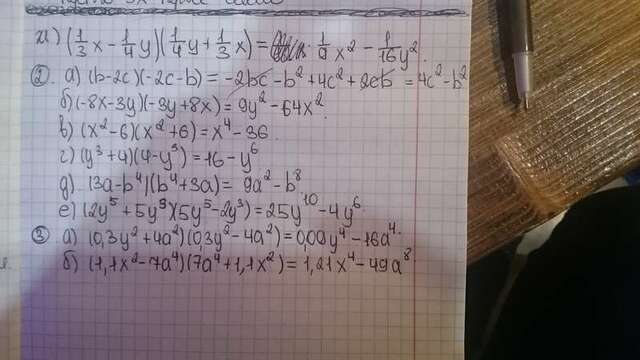 и) (1/3 x - 1/4 y)(1/4 y + 1/3 x) = 1/9 x² - 1/16 y².
② а) (b-2c)(-2c-b) = -2bc - b² + 4c² + 2cb = 4c² - b²
б) (-8x-3y)(-3y+8x) = 9y² - 64x².
в) (x²-6)(x²+6) = x⁴ - 36.
г) (y³+4)(4-y³) = 16 - y⁶
д) (3a-b⁴)(b⁴+3a) = 9a² - b⁸
е) (2y³+5y⁵)(5y⁵-2y³) = 25y¹⁰ - 4y⁶.
③ а) (0,3y²+4a²)(0,3y²-4a²) = 0,09y⁴ - 16a⁴.
б) (1,1x²-7a⁴)(7a⁴+1,1x²) = 1,21x⁴ - 49a⁸